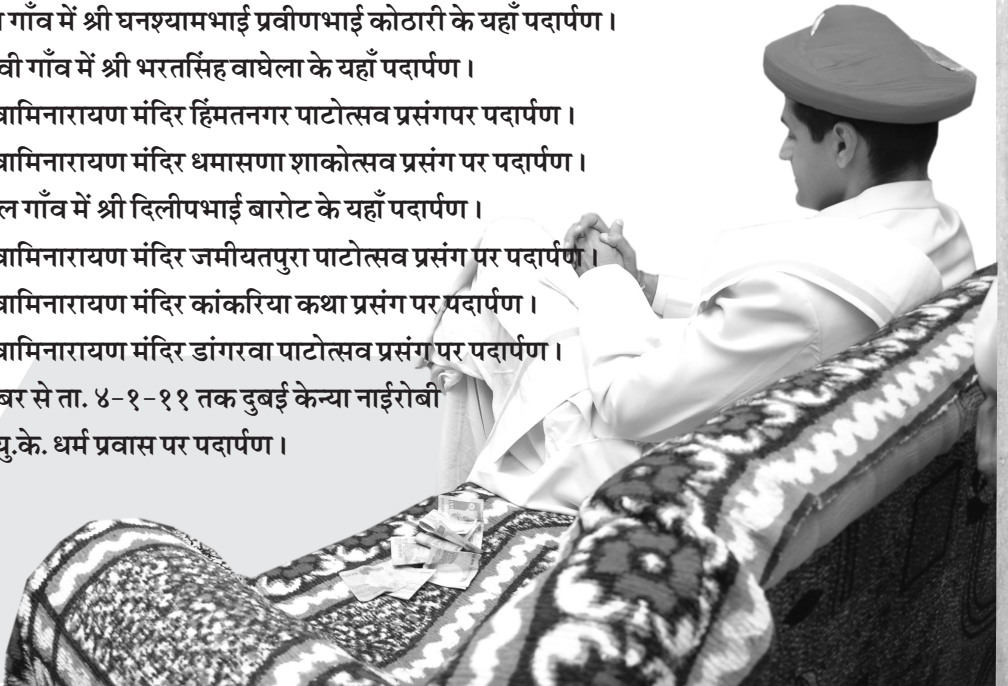 गाँव में श्री घनश्यामभाई प्रवीणभाई कोठारी के यहाँ पदार्पण ।
वी गाँव में श्री भरतसिंह वाघेला के यहाँ पदार्पण ।
वामिनारायण मंदिर हिंमतनगर पाटोत्सव प्रसंगपर पदार्पण ।
वामिनारायण मंदिर धमासणा शाकोत्सव प्रसंग पर पदार्पण ।
ल गाँव में श्री दिलीपभाई बारोट के यहाँ पदार्पण ।
वामिनारायण मंदिर जमीयतपुरा पाटोत्सव प्रसंग पर पदार्पण ।
वामिनारायण मंदिर कांकरिया कथा प्रसंग पर पदार्पण ।
वामिनारायण मंदिर डांगरवा पाटोत्सव प्रसंग पर पदार्पण ।
बर से ता. ४-१-११ तक दुबई केन्या नाईरोबी
यु.के. धर्म प्रवास पर पदार्पण ।